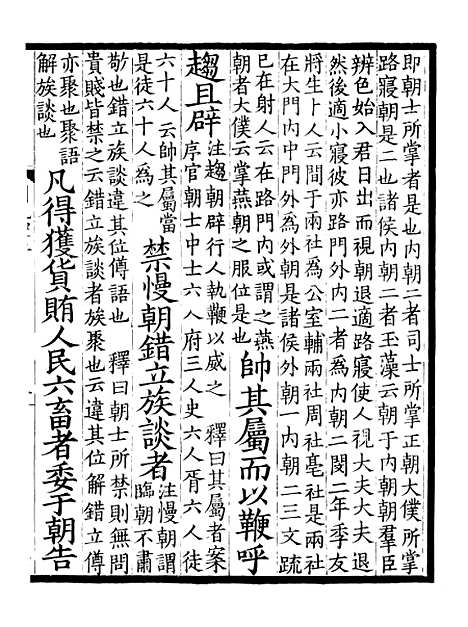 即朝士所掌者是也内朝二者司士所掌正朝大僕所掌
路寢朝是二也諸侯内朝二者玉藻云朝于内朝朝羣臣
辨色始入君日出而視朝退適路寢使人視大夫大夫退
然後適小寢彼亦路門外内二者爲内朝二閔二年季友
將生卜人云間于兩社爲公室輔兩社周社亳社是兩社
在大門内中門外爲外朝是諸侯外朝一内朝二三文疏
已在射人云在路門内或謂之燕
朝者大僕云掌燕朝之服位是也
帥其屬而以鞭呼
趨且辟
注趨朝辟行人執鞭以威之 釋曰其屬者案
序官朝士中士六人府三人史六人胥六人徒
六十人云帥其屬當
是徒六十人爲之
禁慢朝錯立族談者
注慢朝謂
臨朝不肅
敬也錯立族談違其位僔語也 釋曰朝士所禁則無問
貴賤皆禁之云錯立族談者族聚也云違其位解錯立僔
亦聚也聚語
解族談也
凡得獲貨賄人民六畜者委于朝告